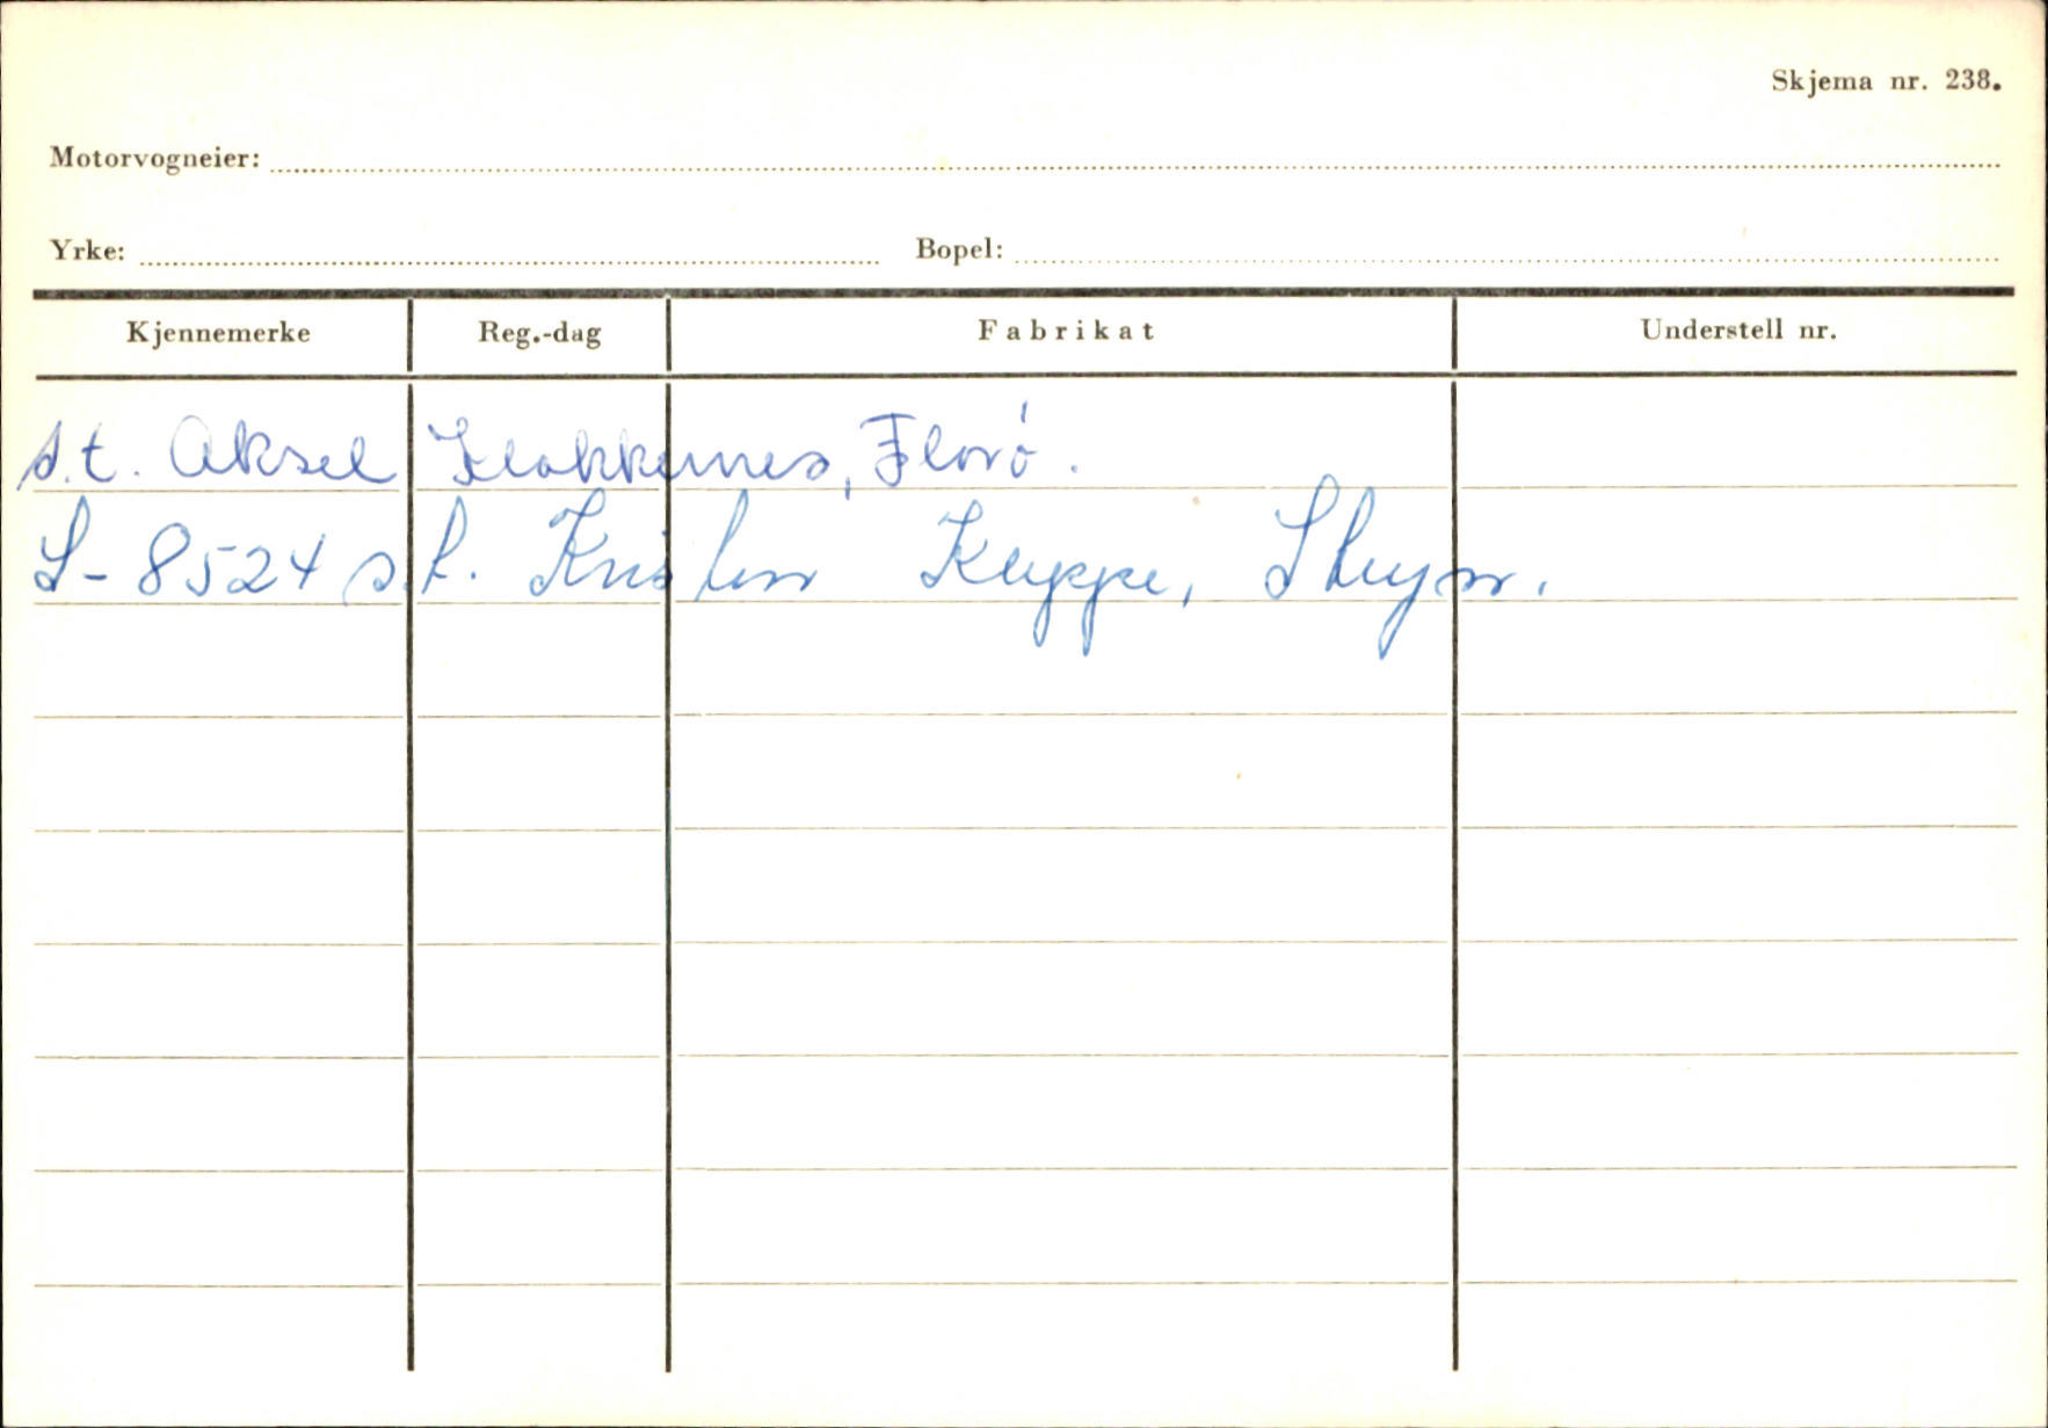 Skjema nr. 238.
Motorvogneier:
Yrke: Bopel:
Kjennemerke Reg.-dag Fabrikat Understell nr.
s.t. Aksel Klakkeunes, Florø.
S-8524 s.t. Kristen Kleppe, Stryn.